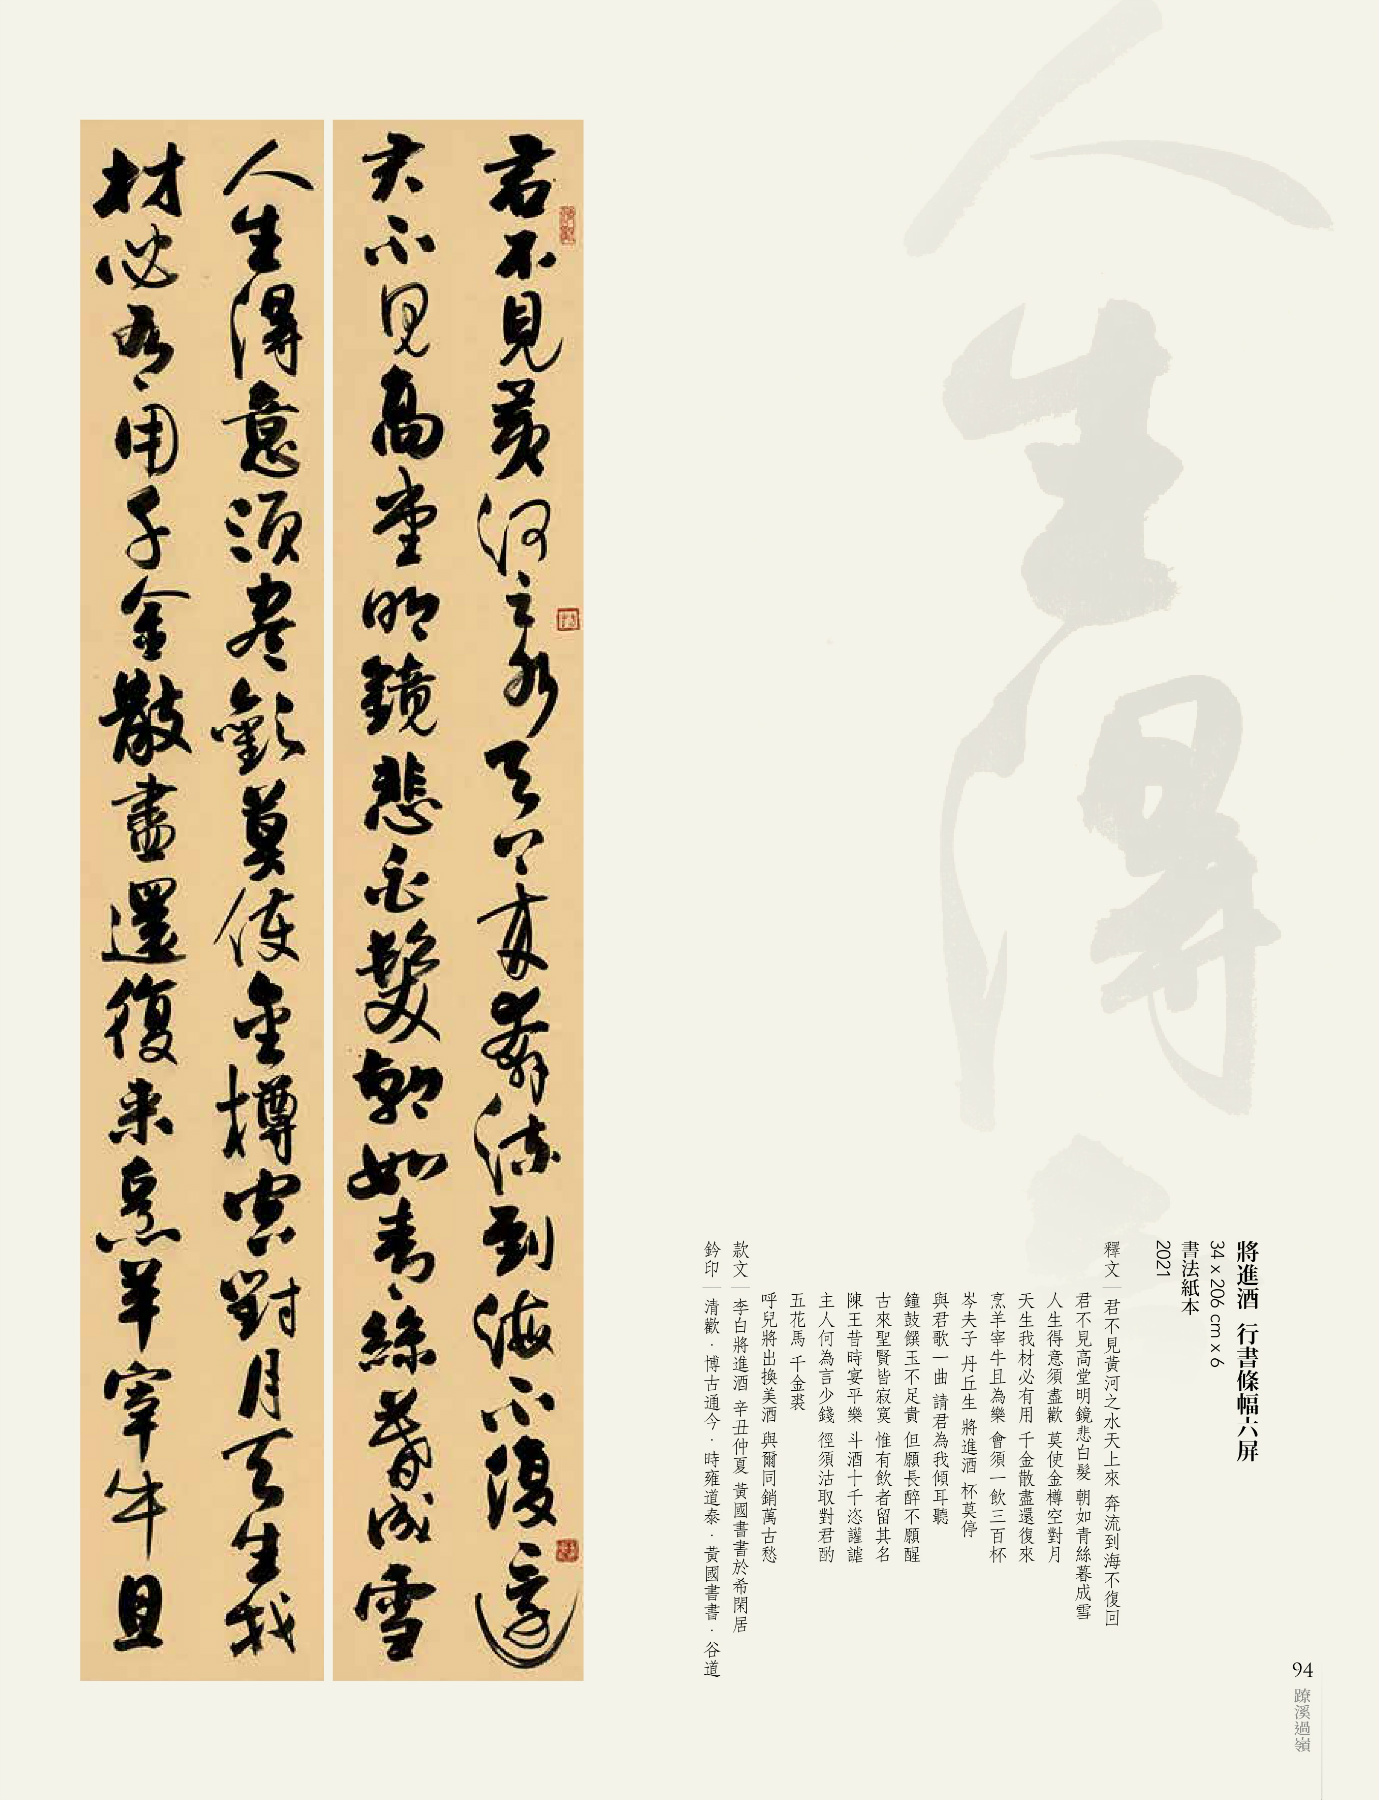 人生得
將進酒 行書條幅六屏
34 x 206 cm x 6
書法紙本
2021
釋文｜君不見黃河之水天上來 奔流到海不復回
君不見高堂明鏡悲白髮 朝如青絲暮成雪
人生得意須盡歡 莫使金樽空對月
天生我材必有用 千金散盡還復來
烹羊宰牛且為樂 會須一飲三百杯
岑夫子 丹丘生 將進酒 杯莫停
與君歌一曲 請君為我傾耳聽
鐘鼓饌玉不足貴 但願長醉不願醒
古來聖賢皆寂寞 惟有飲者留其名
陳王昔時宴平樂 斗酒十千恣讙謔
主人何為言少錢 徑須沽取對君酌
五花馬 千金裘
呼兒將出換美酒 與爾同銷萬古愁
款文｜李白將進酒 辛丑仲夏 黃國書書於希閑居
鈐印｜清歡．博古通今．時雍道泰．黃國書書．谷道
君不見黃河之水天上來奔流到海不復還
君不見高堂明鏡悲白髮朝如青絲暮成雪
人生得意須盡歡莫使金樽空對月天生我
材必有用千金散盡還復来烹羊宰牛且
94
蹽溪過嶺